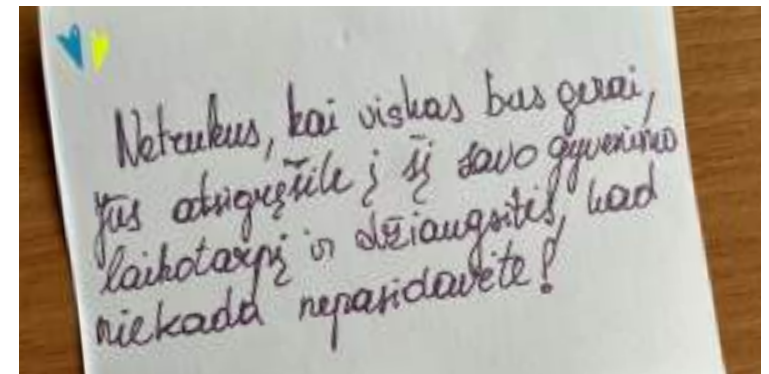 Netrukus, kai viskas bus gerai,
jūs atsigręšite į šį savo gyvenimo
laikotarpį ir džiaugsitės, kad
niekada nepasidavėte!